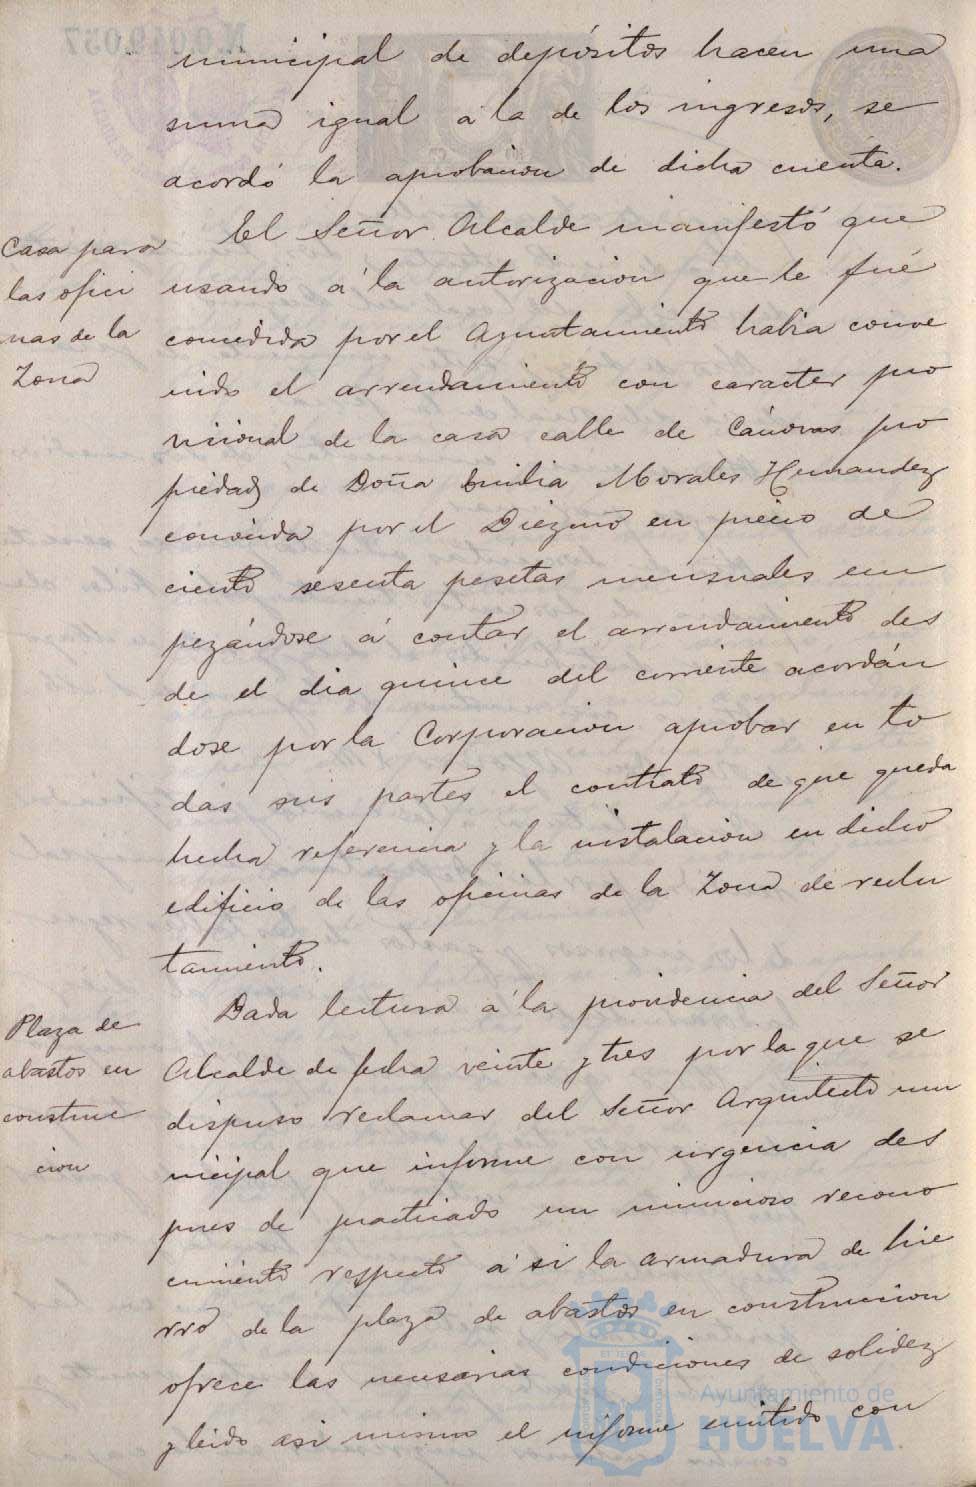 N.0.019.057
municipal de depósitos hacen una
suma igual á la de los ingresos, se
acordó la aprobacion de dicha cuenta.
Casa para
las ofici
nas de la
Zona
El Señor Alcalde manifestó que
usando á la autorizacion que le fué
concedida por el Ayuntamiento habia conve
nido el arrendamiento con caracter pro
visional de la casa calle de Cánovas pro
piedad de Doña Emilia Morales Hernandez
conocida por el Diezmo en precio de
ciento sesenta pesetas mensuales em
pezándose á contar el arrendamiento des
de el dia quince del corriente acordán
dose por la Corporacion aprobar en to
das sus partes el contrato de que queda
hecha referencia y la instalacion en dicho
edificio de las oficinas de la Zona de reclu
tamiento.
Plaza de
abastos en
construc
cion
Dada lectura á la providencia del Señor
Alcalde de fecha veinte y tres por la que se
dispuso reclamar del Señor Arquitecto mu
nicipal que informe con urgencia des
pues de practicado un minucioso recono
cimiento respecto á si la armadura de hie
rro de la plaza de abastos en construccion
ofrece las necesarias condiciones de solidez
y leido asi mismo el informe emitido con
Ayuntamiento de
HUELVA